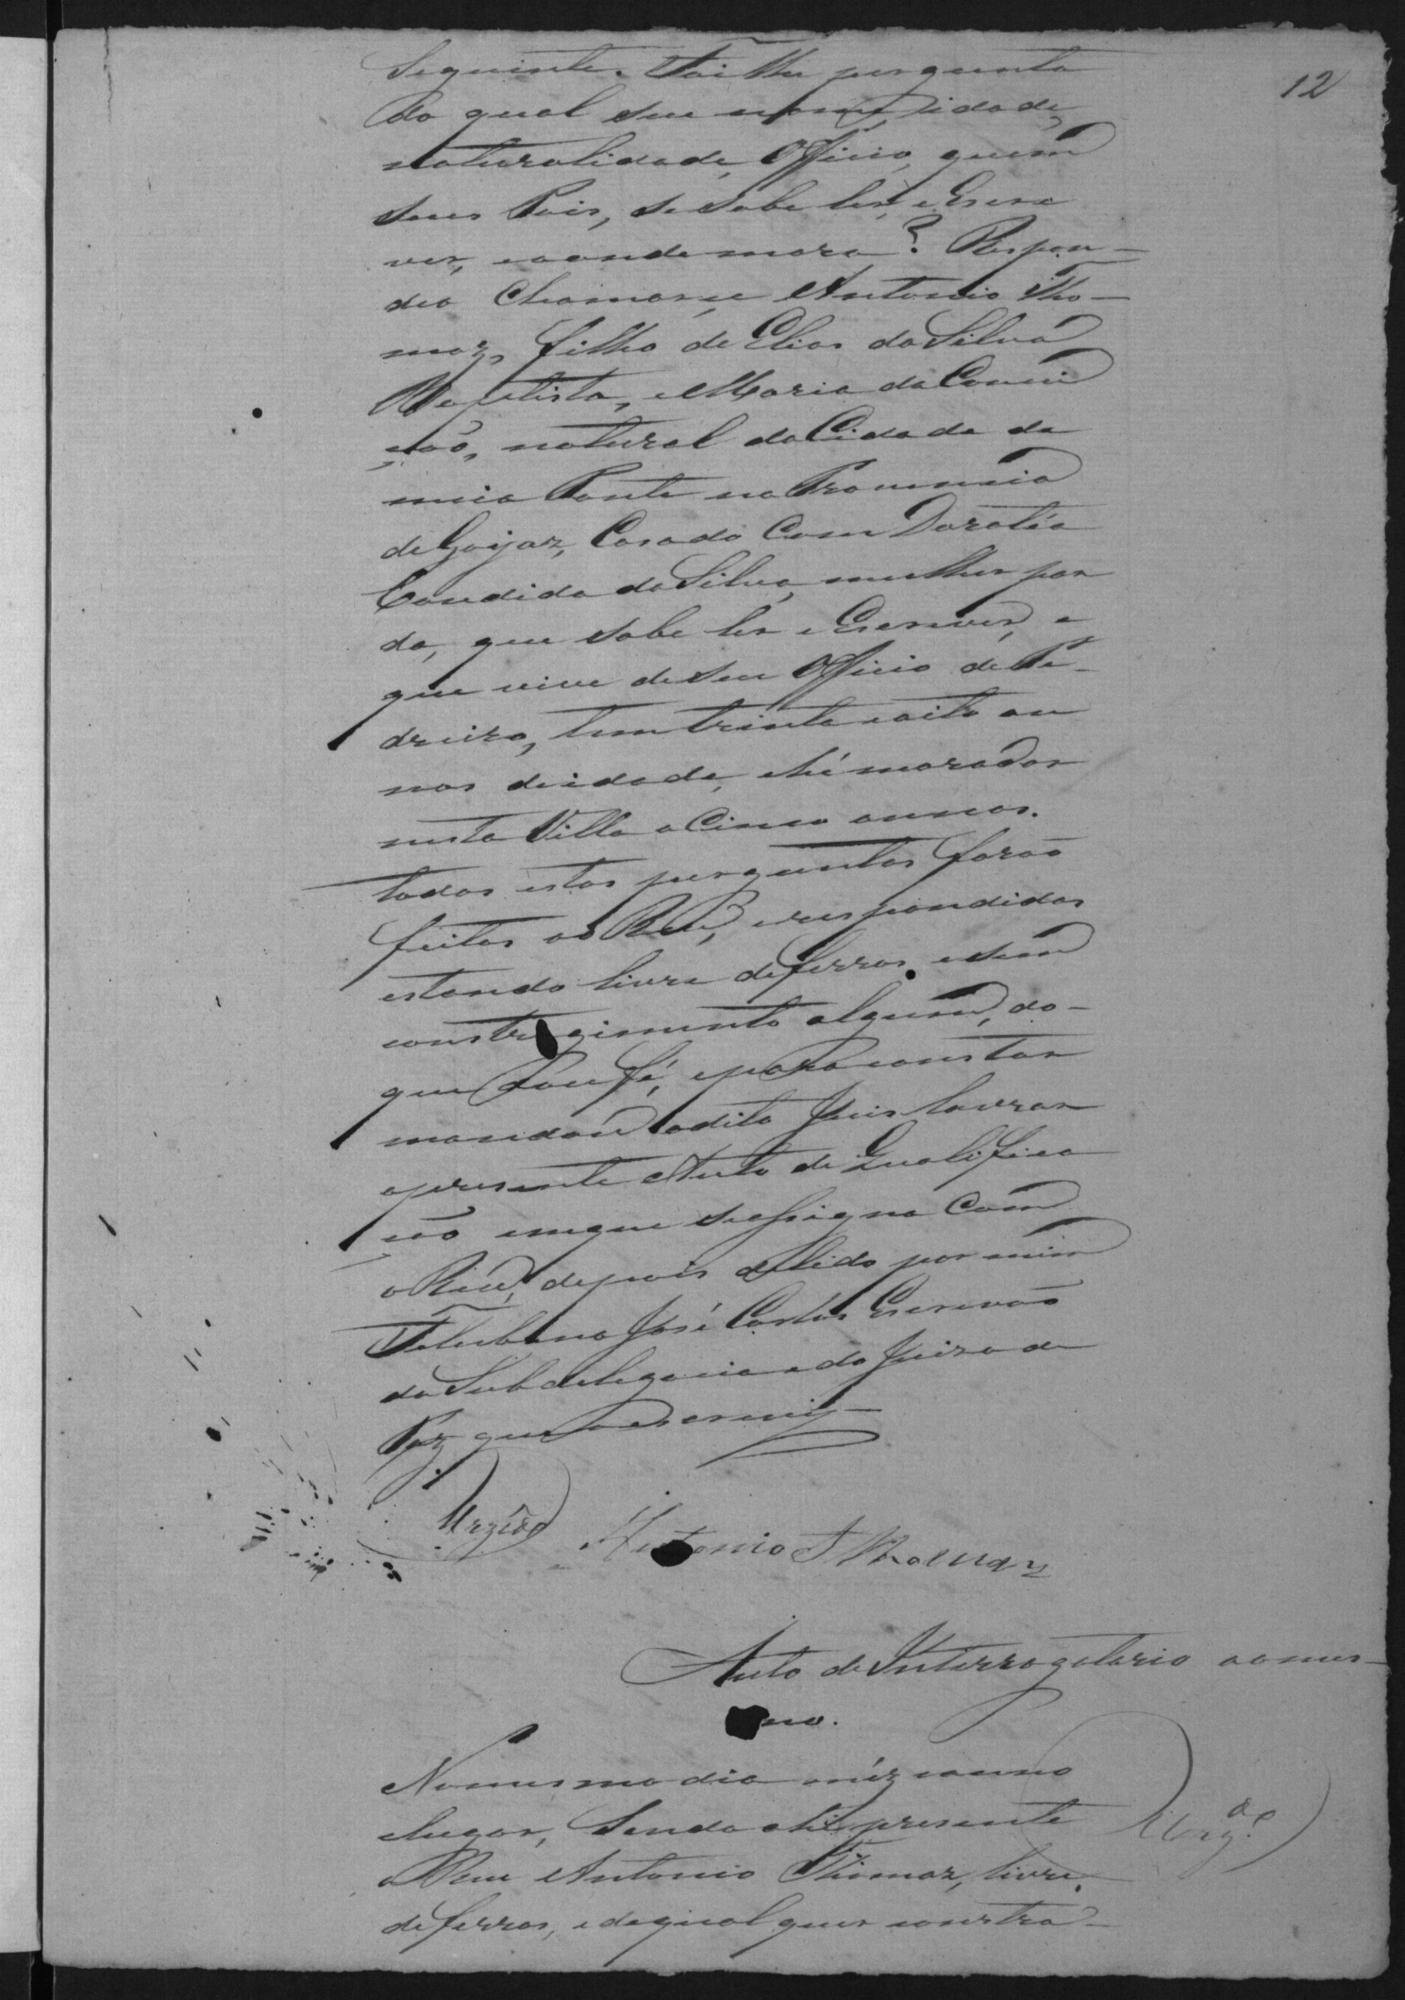 12
Seguinte. Foi lhe pergunta
do qual seu nome, idade,
naturalidade, Officio, quem
seus Pais, se sabe ler, e Escre
ver, e aonde mora? Respon-
deo Chamarse Antonio Tho-
maz, filho de Elias da Silva
Baptista, e Maria da Concei
ção, natural da Cidade de
meia Ponte na Provincia
de Goyaz, Casado Com Darotéa
Candida da Silva, mulher par
da, que sabe ler e Escrever, e
que vive de seu Officio de Pe-
dreiro, tem trinta e oito an
nos de idade, e hé morador
nesta Villa a Cinco annos.
todas estas perguntas forão
feitas ao Reu, e respondidas
estando livre de ferros, e sem
constrogimento algum, do-
que dou fé, e para constar
mandou o dito Juis lavrar
o presente Auto de Qualifica
ção em que se assigna Com
o Reu, depois de lido por mim
José Carlos Escrivão
da Subdelegacia e do Juizo de
Paz que o escrevy
Antonio Thomaz
Auto de Interrogatorio ao mes-
mo.
No mesmo dia mêz e anno
e lugar, Sendo ahi presente
o Reu Antonio Thomaz, livre
de ferros, e de qual quer constra-